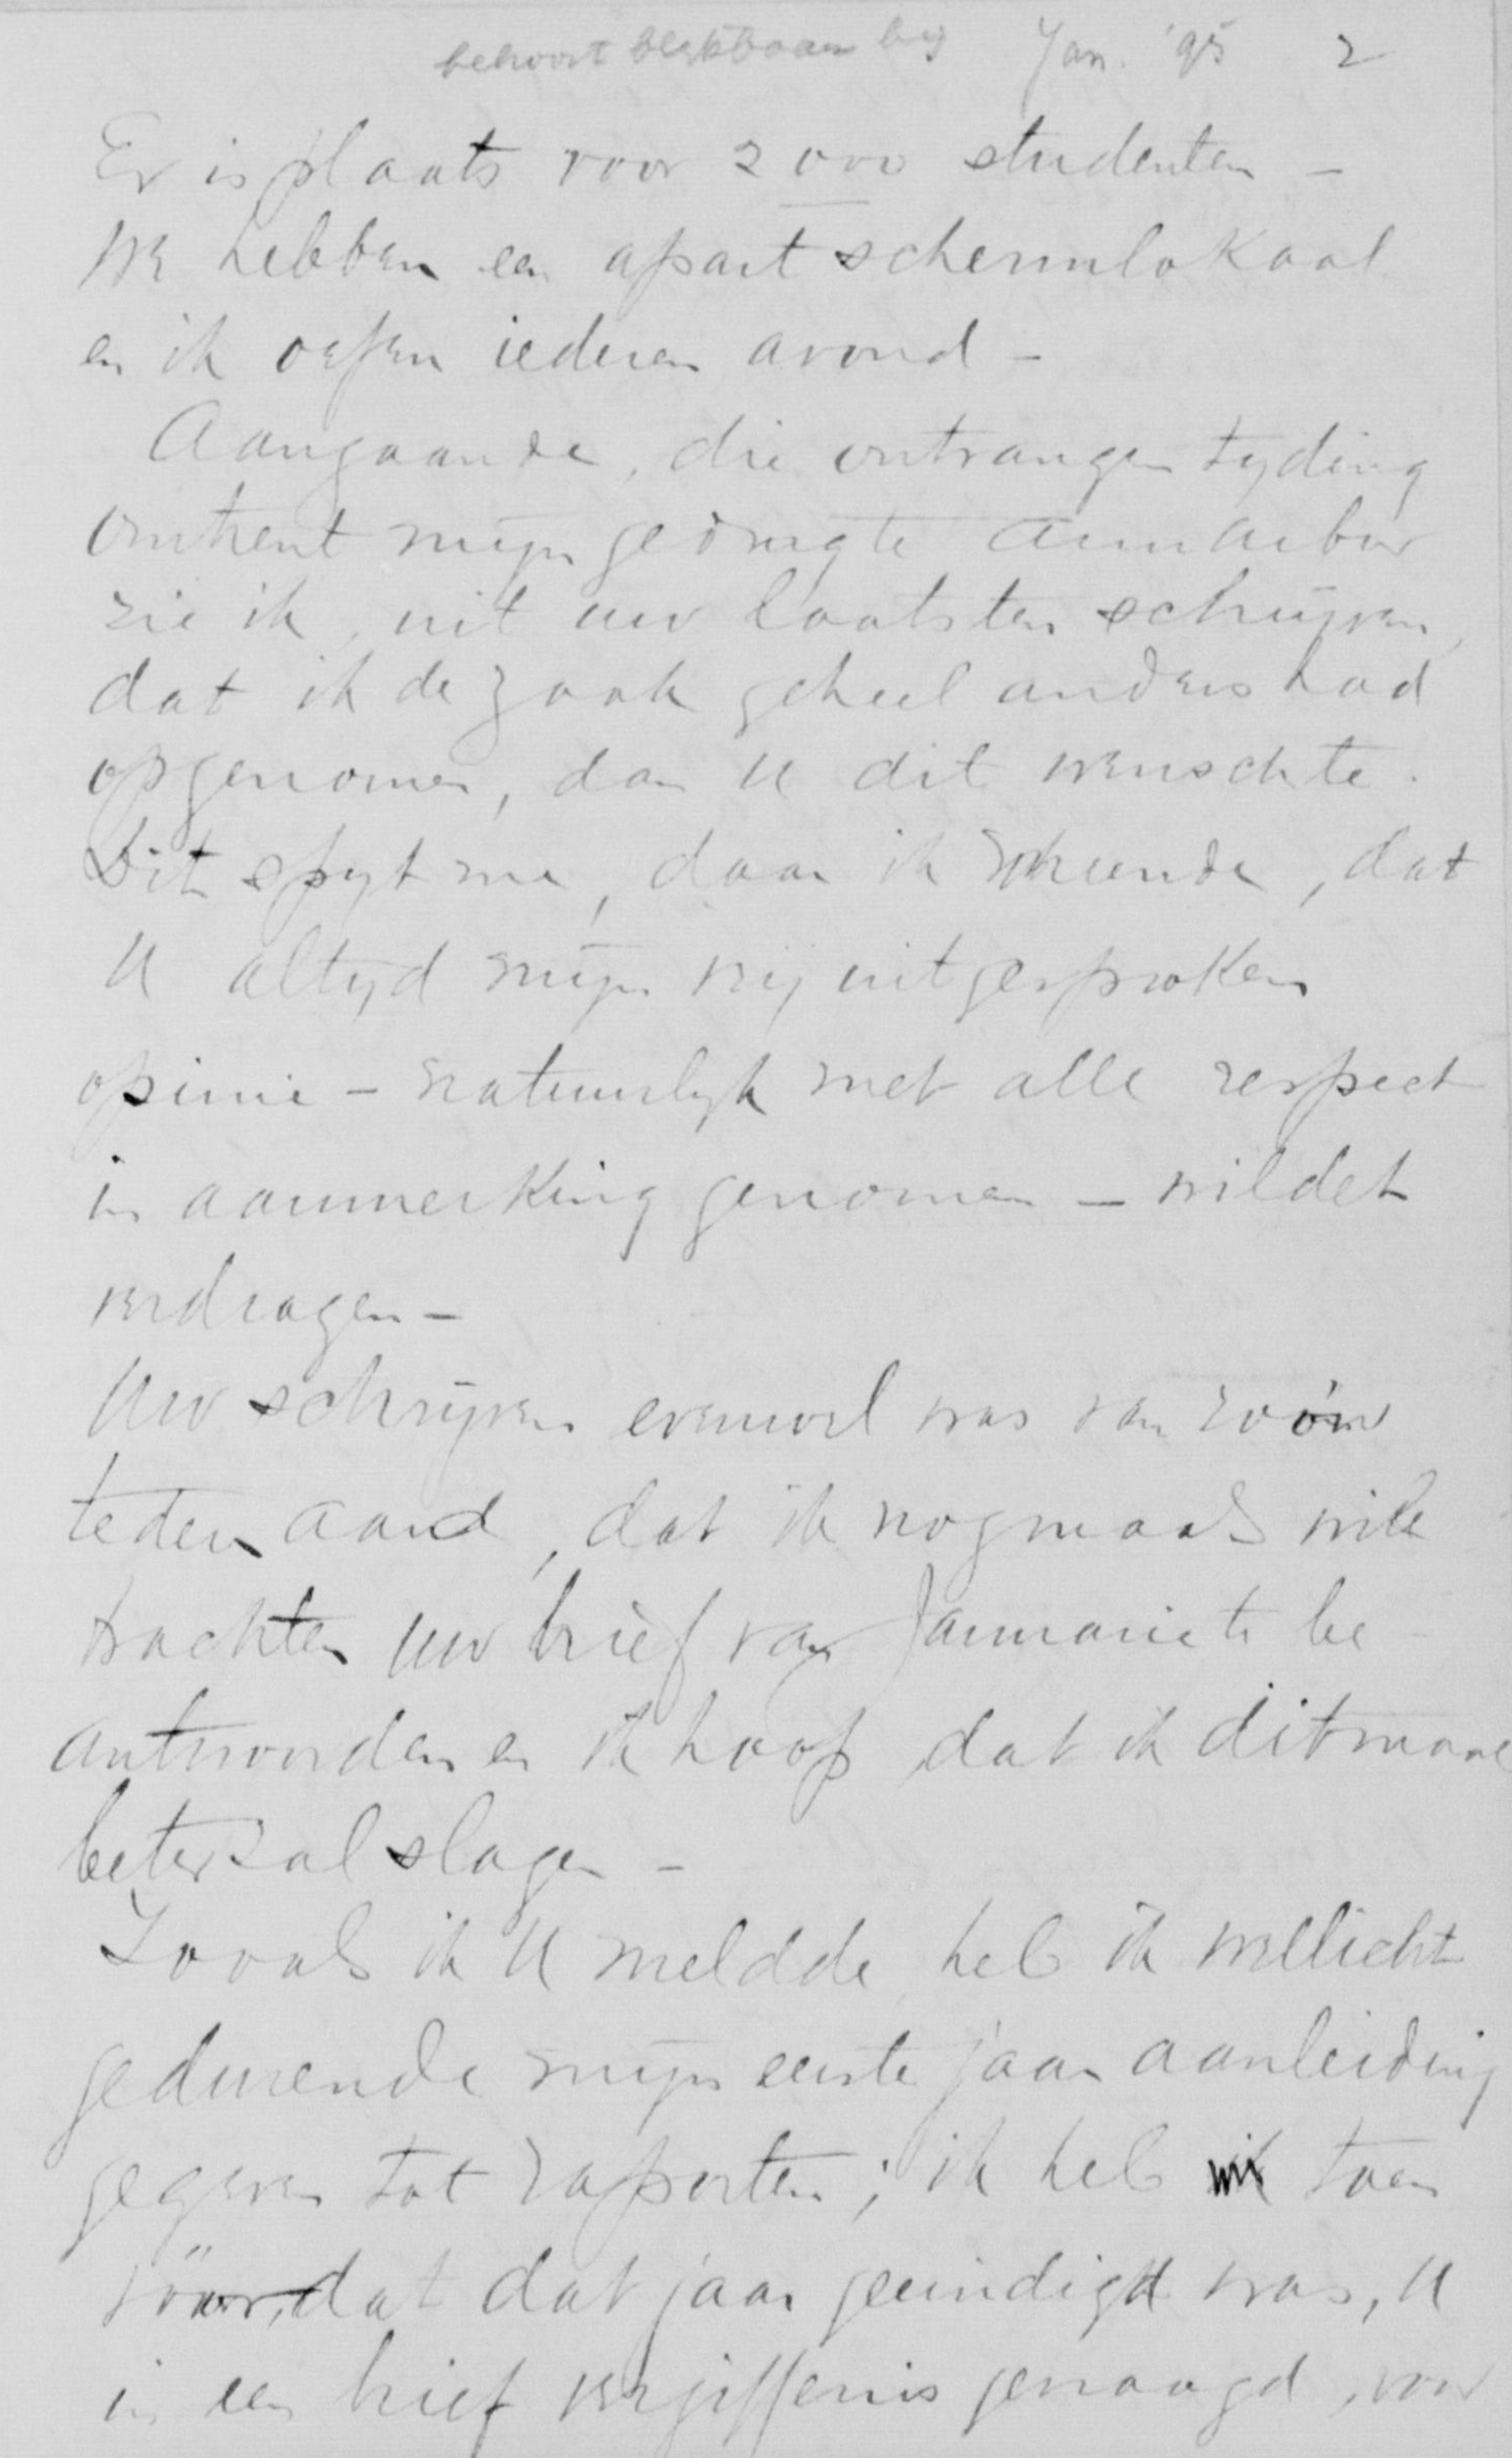 behoort blykbaar bij Jan. '95 2
Er is plaats voor 2000 studenten —
We hebben een apart schermlokaal
en ik oefen iederen avond —
Aangaande, die ontvangen tyding
omtrent mijn gedrag te Ann Arbor
zie ik, uit uw laatsten schrijven,
dat ik de zaak geheel anders had
opgenomen, dan U dit wenschte.
Dit spyt me, daar ik meende, dat
U altyd mijn vrij uitgesproken
opinie — natuurlyk met alle respect
in aanmerking genomen — wildet
verdragen —
Uw schrijven evenwel was van zoo'n
tederen aard, dat ik nogmaals wil
trachten uw brief van Januarie te be-
antwoorden en ik hoop dat ik ditmaal
beter zal slagen —
Zooals ik U meldde, heb ik wellicht
gedurende mijn eerste jaar aanleiding
gegeven tot raporten; ik heb toen
vóór, dat dat jaar geeindigd was, U
in een brief vergiffenis gevraagd, voor